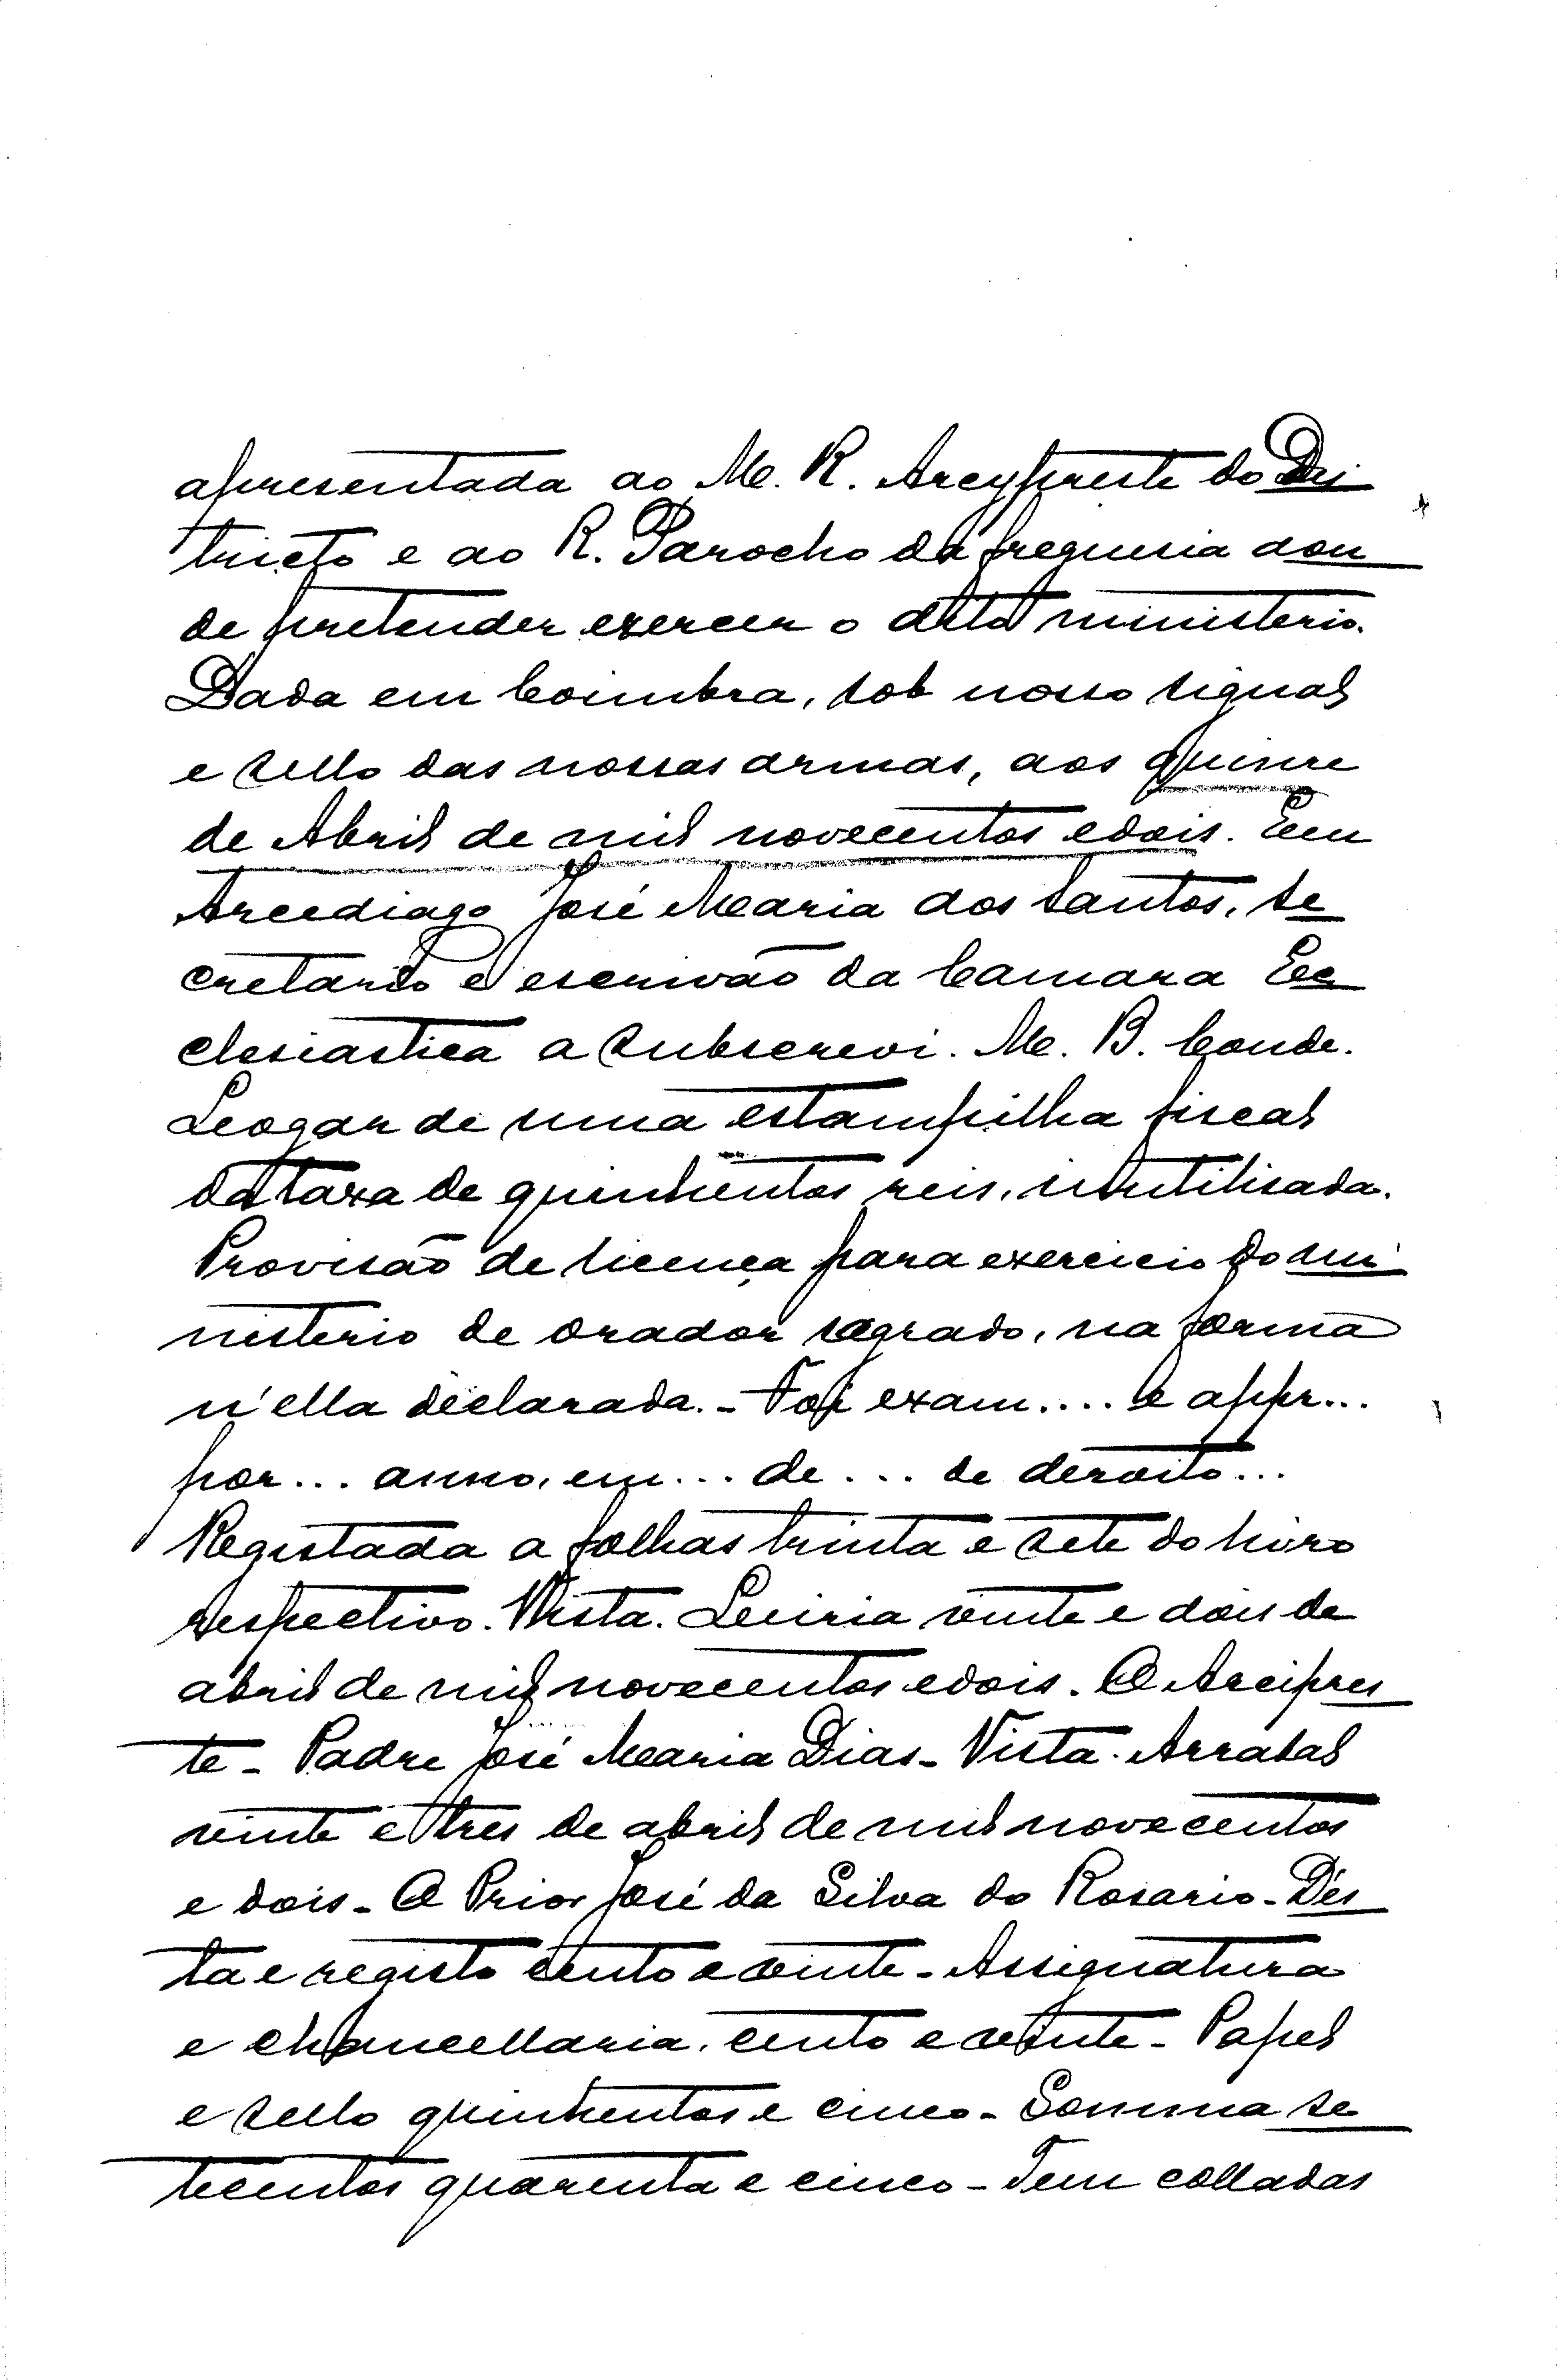 apresentada ao M. R. Arcypreste do Dis
tricto e ao R. Parocho da freguesia aon
de pretender exercer o dito ministerio.
Dada em Coimbra, sob nosso signal
e sello das nossas armas, aos quinze
de Abril de mil novecentos e dois. Eeu
Arcediago José Maria dos Santos, Se
cretario e escrivão da Camara Ec
clesiastica a subscrevi. M. B. Conde.
Leogar de uma estampilha fiscal
da taxa de quinhentos reis, inutilisada.
Provisão de licença para exercicio do mi
nisterio de orador sagrado, na forma
n'ella declarada. - Foi exam.... e appr...
por... anno, em... de... de dezoito...
Registada a folhas trinta e sete do livro
respectivo. Vista. Leiria vinte e dois de
abril de mil novecentos e dois. O Arcipres
te - Padre José Maria Dias - Vista. Arrabal
vinte e tres de abril de mil novecentos
e dois - O Prior José da Silva do Rosario - Des
ta e registo cento e vinte - Assignatura
e chancellaria, cento e vinte - Papel
e sello quinhentos e cinco - Somma se
tecentos quarenta e cinco - Tem colladas